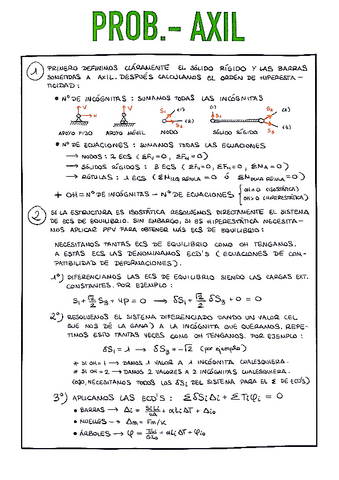 PROB.- AXIL
1 PRIMERO DEFINIMOS CLARAMENTE EL SÓLIDO RÍGIDO Y LAS BARRAS
SOMETIDAS A AXIL. DESPUÉS CALCULAMOS EL ORDEN DE HIPERESTA-
TICIDAD:
• Nº DE INCÓGNITAS: SUMAMOS TODAS LAS INCÓGNITAS
V H V (1) (2) S1 S2 S3
APOYO FIJO APOYO MÓVIL NODO SÓLIDO RÍGIDO
• Nº DE ECUACIONES: SUMAMOS TODAS LAS ECUACIONES
→ NODOS: 2 ECS (ΣFV=0, ΣFH=0)
→ SÓLIDOS RÍGIDOS: 3 ECS (ΣFV=0, ΣFH=0, ΣMA=0)
→ RÓTULAS: 1 ECS
+ OH = Nº DE INCÓGNITAS - Nº DE ECUACIONES { OH=0 (ISOSTÁTICA)
OH>0 (HIPERESTÁTICA)
2 SI LA ESTRUCTURA ES ISOSTÁTICA RESOLVEMOS DIRECTAMENTE EL SISTEMA
DE ECS DE EQUILIBRIO. SIN EMBARGO, SI ES HIPERESTÁTICA NECESITA-
MOS APLICAR PPV PARA OBTENER MÁS ECS DE EQUILIBRIO:
NECESITAMOS TANTAS ECS DE EQUILIBRIO COMO OH TENGAMOS.
A ESTAS ECS LAS DENOMINAMOS ECD'S (ECUACIONES DE COM-
PATIBILIDAD DE DEFORMACIONES).
1º) DIFERENCIAMOS LAS ECS DE EQUILIBRIO SIENDO LAS CARGAS EXT.
CONSTANTES. POR EJEMPLO:
S1 + √2/2 S3 + 4P = 0 → δS1 + √2/2 δS3 + 0 = 0
2º) RESOLVEMOS EL SISTEMA DIFERENCIADO DANDO UN VALOR (EL
QUE NOS DÉ LA GANA) A LA INCÓGNITA QUE QUERAMOS. REPE-
TIMOS ESTO TANTAS VECES COMO OH TENGAMOS. POR EJEMPLO:
δS1 = 1 → δS3 = -√2 (por ejemplo)
* SI OH = 1 → DAMOS 1 VALOR A 1 INCÓGNITA CUALESQUIERA.
* SI OH = 2 → DAMOS 2 VALORES A 2 INCÓGNITAS CUALESQUIERA.
(OJO, NECESITAMOS TODOS LOS δSi DEL SISTEMA PARA EL Σ DE ECD'S)
3º) APLICAMOS LAS ECD'S: ΣδSiΔi + ΣTiφi = 0
• BARRAS → Δi = + αLiΔT + Δio
• MUELLES → Δm = Fm/K
• ÁRBOLES → φ = + αLiΔT + φio